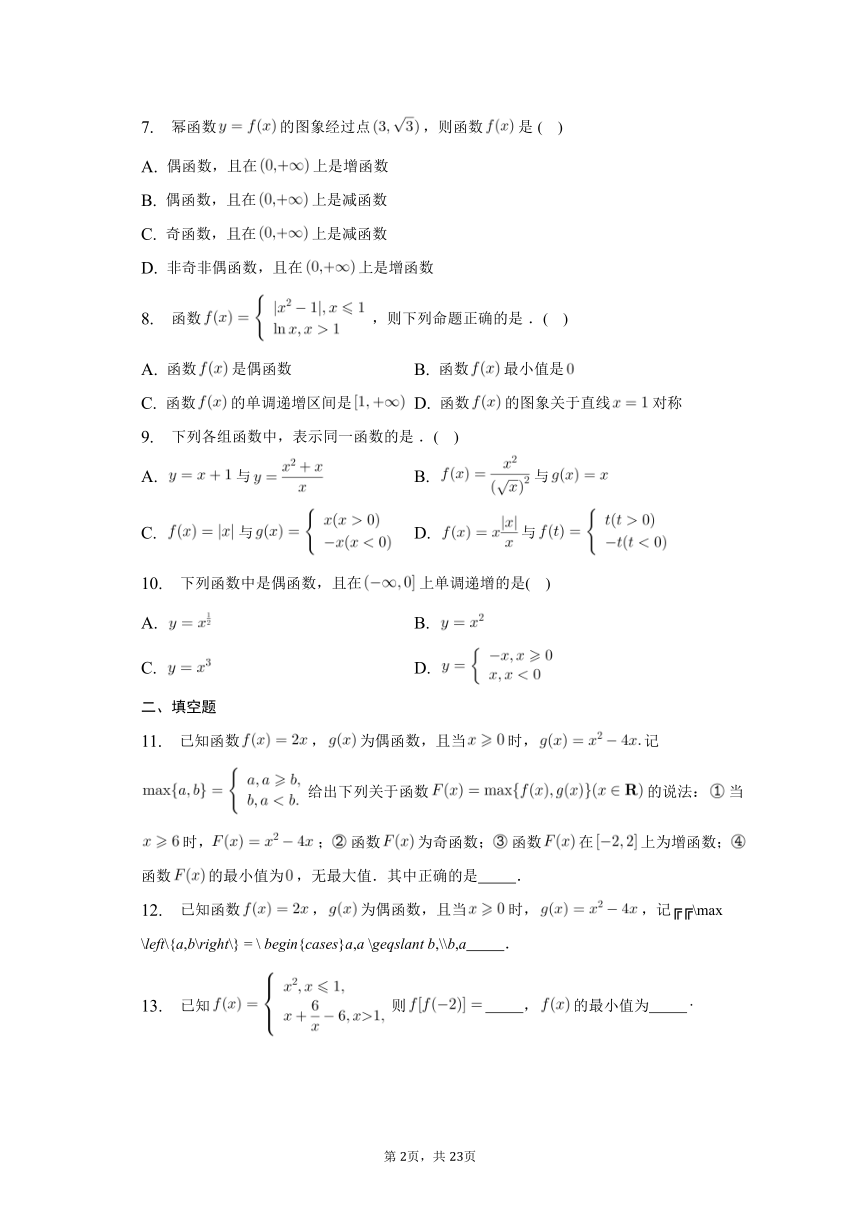 7. 幂函数y = f(x)的图象经过点(3, √3)，则函数f(x)是 ( )
A. 偶函数，且在(0,+∞)上是增函数
B. 偶函数，且在(0,+∞)上是减函数
C. 奇函数，且在(0,+∞)上是减函数
D. 非奇非偶函数，且在(0,+∞)上是增函数
8. 函数f(x) = { |x² − 1|, x ⩽ 1
ln x, x > 1 ，则下列命题正确的是．( )
A. 函数f(x)是偶函数 B. 函数f(x)最小值是0
C. 函数f(x)的单调递增区间是[1, +∞) D. 函数f(x)的图象关于直线x = 1对称
9. 下列各组函数中，表示同一函数的是．( )
A. y = x + 1与y = (x² + x)/x B. f(x) = x²/(√x)²与g(x) = x
C. f(x) = |x|与g(x) = { x(x > 0)
−x(x < 0) D. f(x) = x|x|/x与f(t) = { t(t > 0)
−t(t < 0)
10. 下列函数中是偶函数，且在(−∞, 0]上单调递增的是( )
A. y = x^(1/2) B. y = x²
C. y = x³ D. y = { −x, x ⩾ 0
x, x < 0
二、填空题
11. 已知函数f(x) = 2x，g(x)为偶函数，且当x ⩾ 0时，g(x) = x² − 4x.记
max{a, b} = { a, a ⩾ b,
b, a < b. 给出下列关于函数F(x) = max{f(x), g(x)}(x ∈ R)的说法：① 当
x ⩾ 6时，F(x) = x² − 4x；② 函数F(x)为奇函数；③ 函数F(x)在[−2, 2]上为增函数；④
函数F(x)的最小值为0，无最大值．其中正确的是_____．
12. 已知函数f(x) = 2x，g(x)为偶函数，且当x ⩾ 0时，g(x) = x² − 4x，记╔╔\max
\left\{a,b\right\} = \ begin{cases}a,a \geqslant b,\\b,a_____．
13. 已知f(x) = { x², x ⩽ 1,
x + 6/x − 6, x>1, 则f[f(−2)] = _____，f(x)的最小值为_____．
第 2页，共 23页